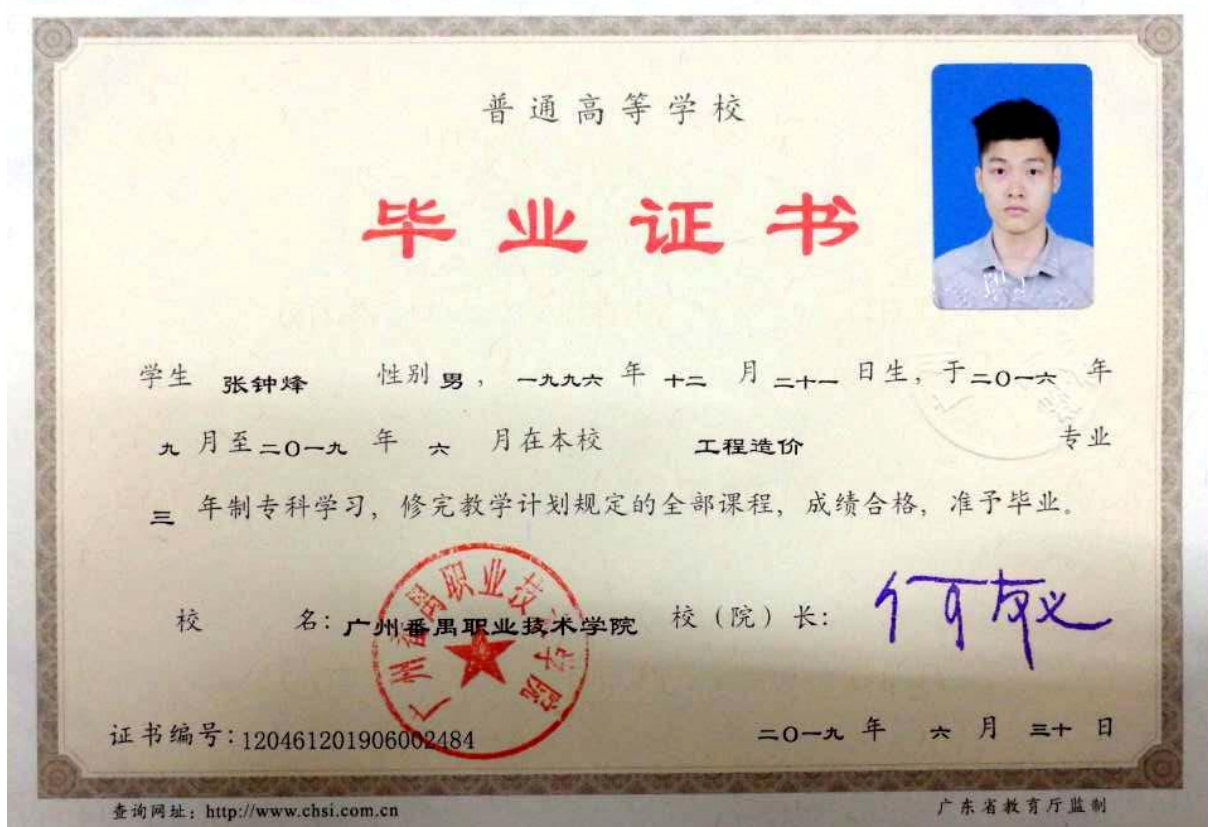 普通高等学校
毕业证书
学生 张钟烽 性别 男，一九九六 年 十二 月 二十一 日生，于二〇一六 年
九 月至二〇一九 年 六 月在本校 工程造价 专业
三 年制专科学习，修完教学计划规定的全部课程，成绩合格，准予毕业。
校 名：广州番禺职业技术学院 校（院）长：何友义
广州番禺职业技术学院
证书编号：120461201906002484 二〇一九 年 六 月 三十 日
查询网址：http://www.chsi.com.cn 广东省教育厅监制